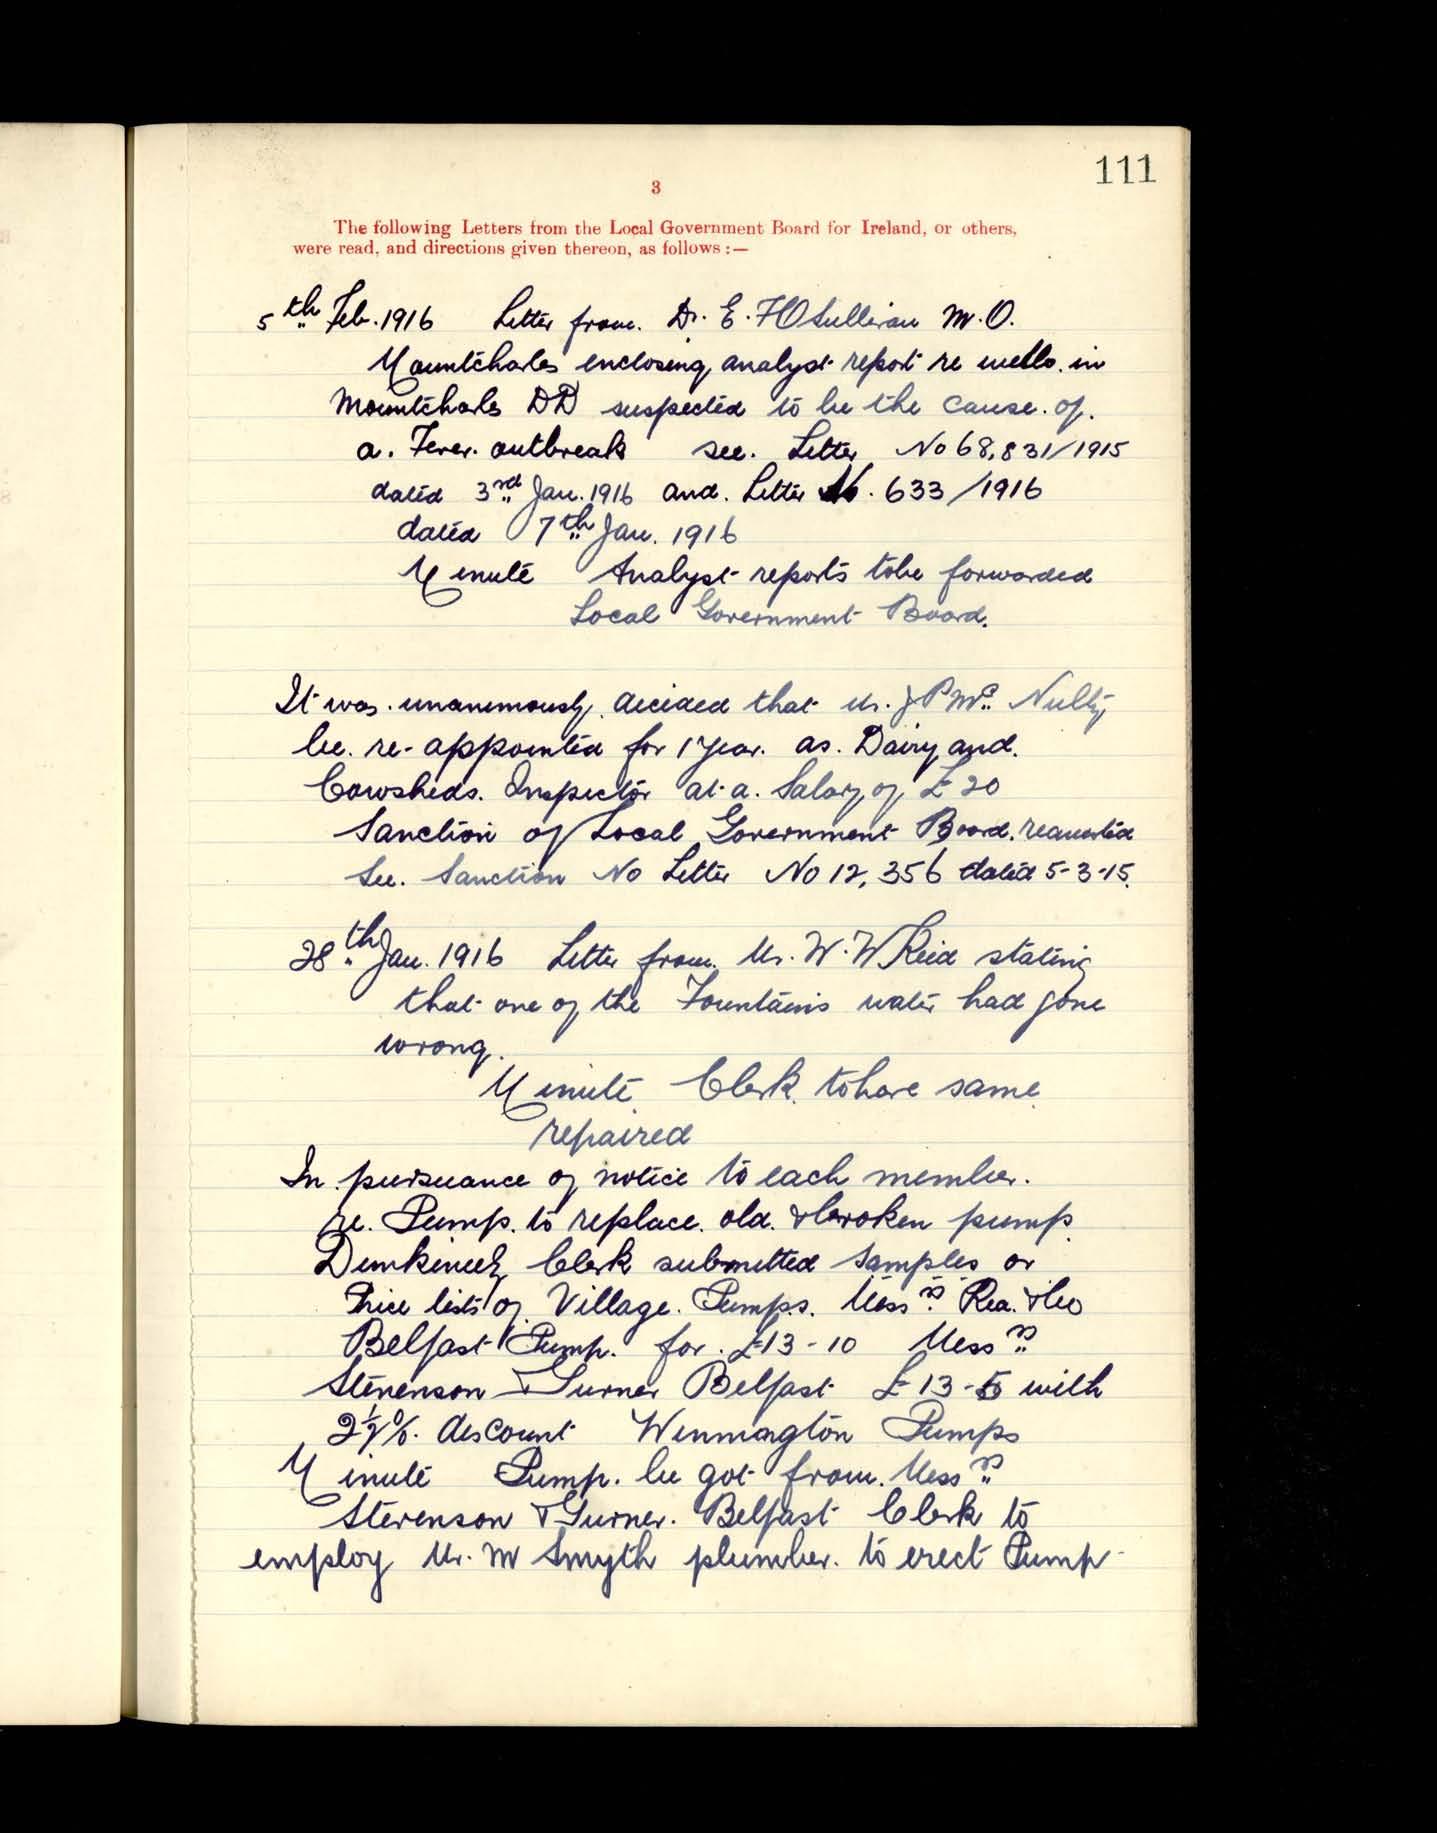 111
3
The following Letters from the Local Government Board for Ireland, or others,
were read, and directions given thereon, as follows :—
5th Feb. 1916 Letter from. Dr. E. F O Sullivan M.O.
Mountcharles enclosing analyst report re wells in
Mountcharles DD suspected to be the cause of.
a. Fever. outbreak see. Letter No 68,831/1915
dated 3rd Jan. 1916 and. Letter No. 633/1916
dated 7th Jan. 1916
Minute Analyst reports to be forwarded
Local Government Board.
It was unanimously decided that Mr. J P McNulty
be. re-appointed for 1 year. as. Dairy and.
Cowsheds. Inspector at a. Salary of £20
Sanction of Local Government Board. requested
See. Sanction No Letter No 12,356 dated 5-3-15.
28th Jan. 1916 Letter from. Mr. W. W Reid stating
that one of the Fountains water had gone
wrong.
Minute Clerk. to have same
repaired
In pursuance of notice to each member.
re. Pump. to replace. old. & broken pump
Dunkineely Clerk submitted samples or
Price lists of Village. Pumps. Messrs Rea. & Co
Belfast Pump. for. £13-10 Messrs
Stevenson & Turner Belfast £13-5 with
2½%. discount Winmington Pumps
Minute Pump. be got from. Messrs
Stevenson & Turner. Belfast Clerk to
employ Mr. M Smyth plumber. to erect Pump